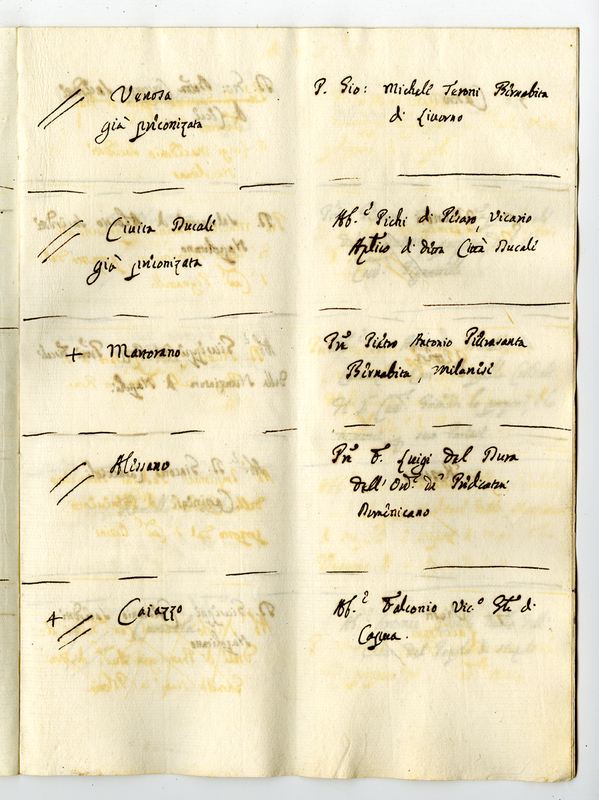 Venosa
già priconizata
P. Gio: Micheli Teroni Birnabita
di Livorno
Civita Ducali
già priconizata
Ab.ᵉ Pichi di Pesaro, Vicario
Aplico di ditta Città Ducali
+ Martorano
Prē Pietro Antonio Pietrasanta
Birnabita, Milanisi
Alissano
Prē F. Luigi del Dura
dell' Ord.ᵉ di Pridicatri
Dominicano
Caiazzo
Ab.ᵉ Falconio Vic.º Gñle di
Capua.